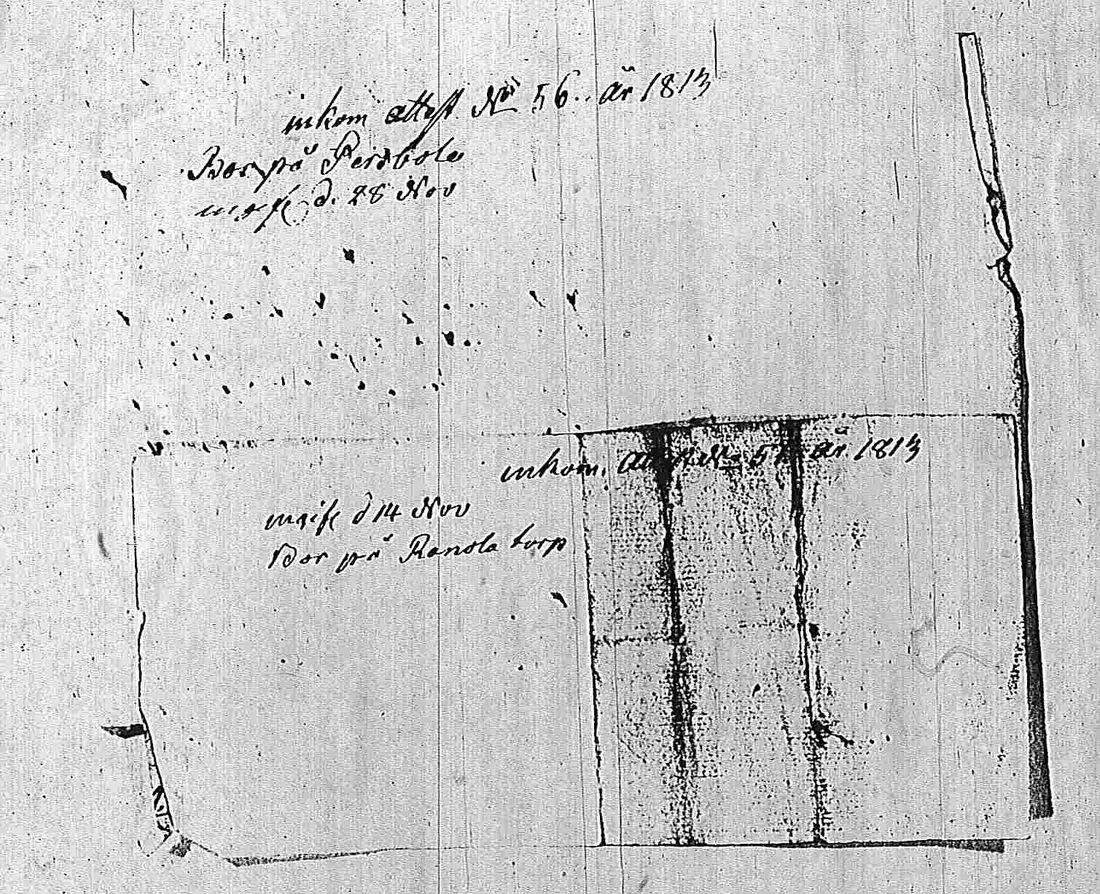 inkom attest No 56. år 1813
Bor på Persbole
d. 28 Nov
inkom. No år 1813
d 14 Nov
Bor på Ranola torp